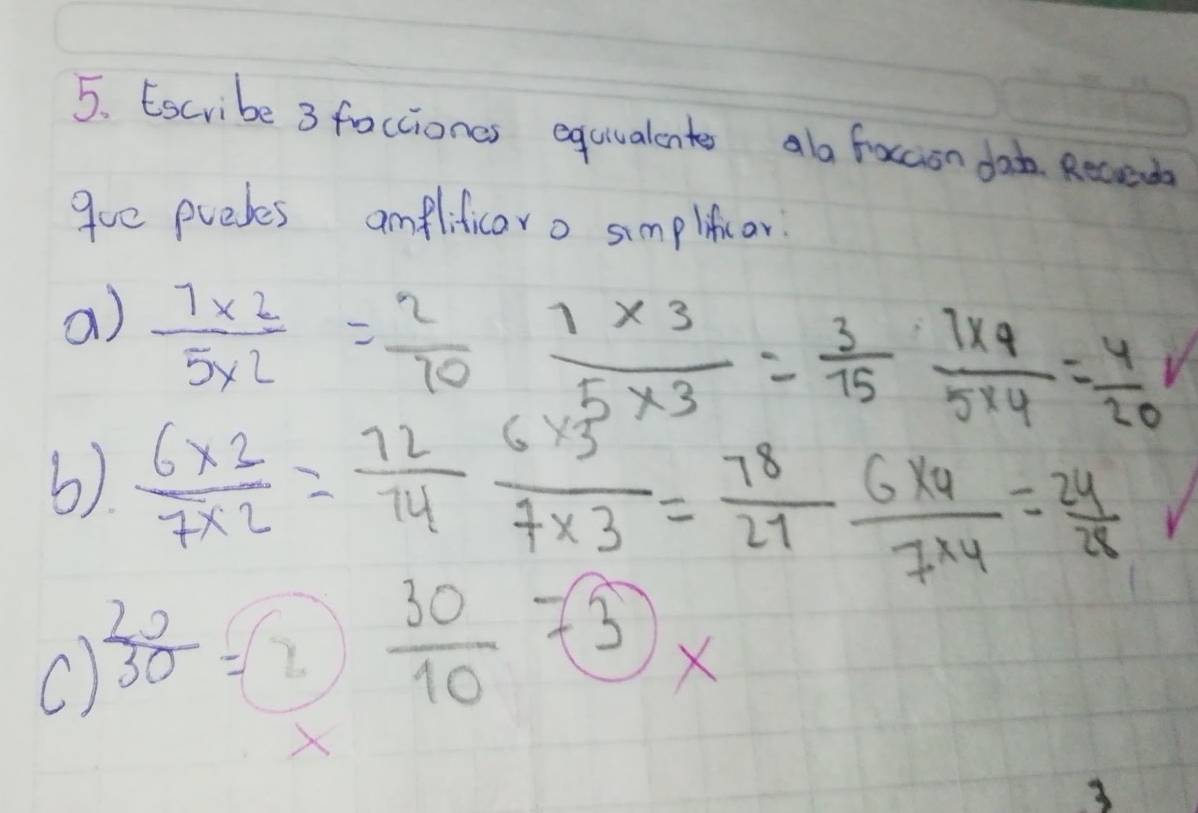 5. Escribe 3 fracciones equivalentes a la fraccion dada. Recuerda
que puedes amplificar o simplificar:
a) 1 x 2 / 5 x 2 = 2 / 10 1 x 3 / 5 x 3 = 3 / 15 1 x 4 / 5 x 4 = 4 / 20 ✓
b). 6 x 2 / 7 x 2 = 12 / 14 6 x 3 / 7 x 3 = 18 / 21 6 x 4 / 7 x 4 = 24 / 28 ✓
c) 20 / 30 = 2 x 30 / 10 = 3 x
3